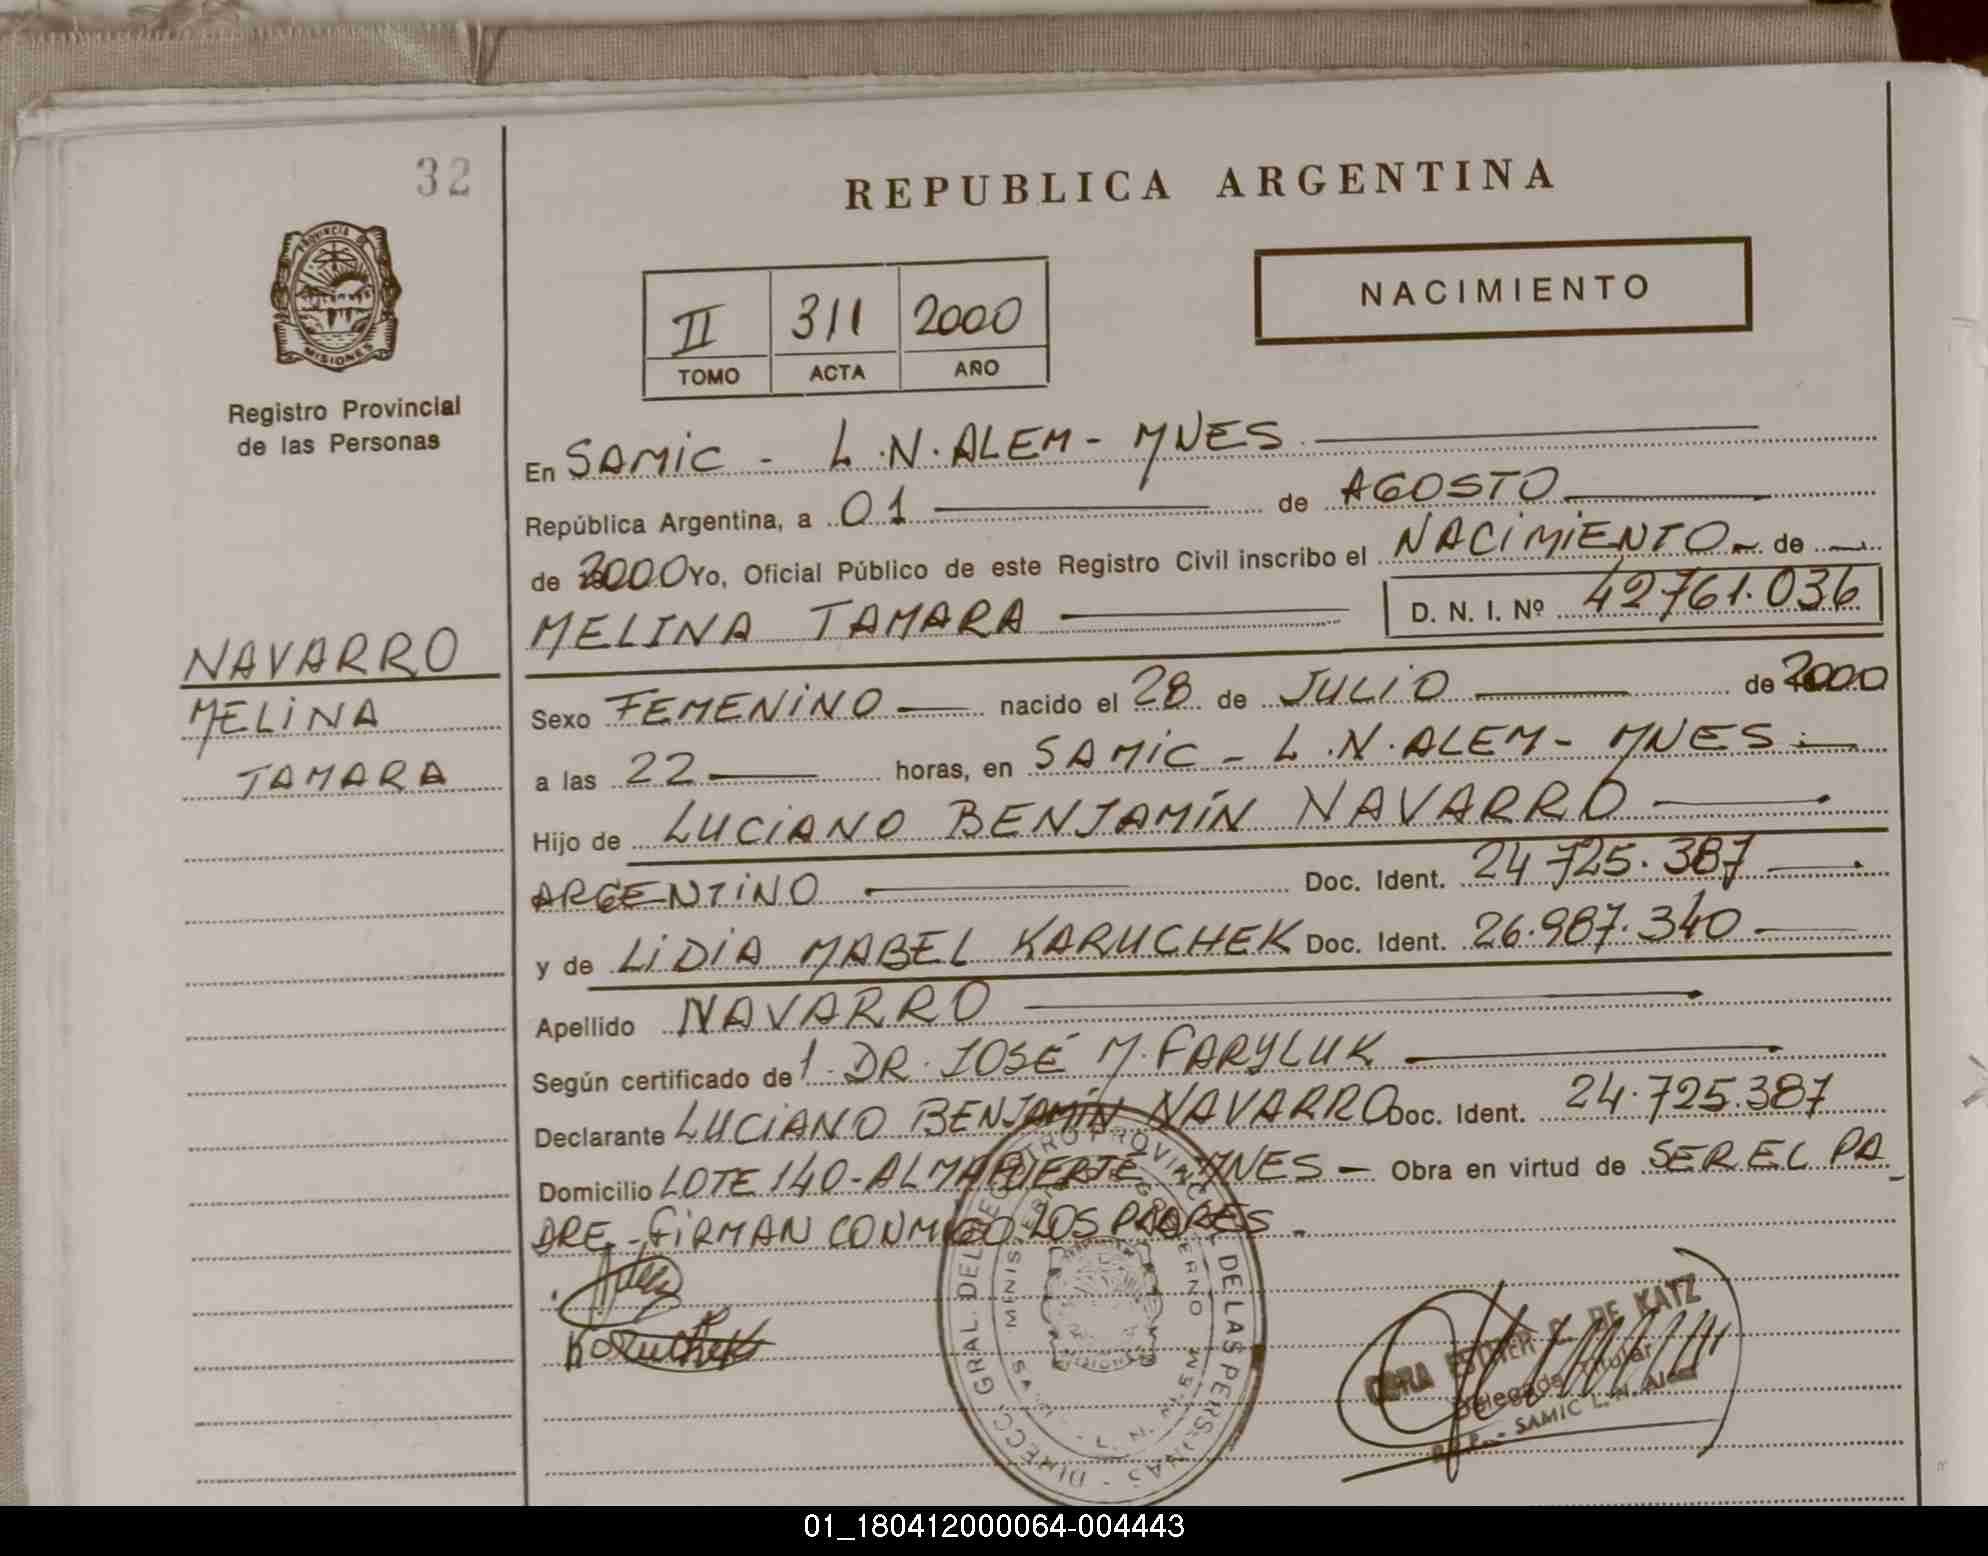 32
REPUBLICA ARGENTINA
PROVINCIA DE
MISIONES
Registro Provincial
de las Personas
II 311 2000
TOMO ACTA AÑO
NACIMIENTO
NAVARRO
MELINA
TAMARA
En SAMIC - L.N.ALEM - MNES
República Argentina, a 01 de AGOSTO
de 2000 Yo, Oficial Público de este Registro Civil inscribo el NACIMIENTO de
MELINA TAMARA D. N. I. Nº 42761.036
Sexo FEMENINO nacido el 28 de JULIO de 2000
a las 22 horas, en SAMIC - L.N.ALEM - MNES.
Hijo de LUCIANO BENJAMÍN NAVARRO
ARGENTINO Doc. Ident. 24.725.387
y de LIDIA MABEL KARUCHEK Doc. Ident. 26.987.340
Apellido NAVARRO
Según certificado de 1. DR. JOSÉ M. FARYLUK
Declarante LUCIANO BENJAMÍN NAVARRO Doc. Ident. 24.725.387
Domicilio LOTE 140 - ALMAFUERTE - MNES - Obra en virtud de SER EL PA
DRE - FIRMAN CONMIGO LOS PADRES.
Karuchek
DIRECC. GRAL. DEL REGISTRO PROVINCIAL DE LAS PERSONAS
MINISTERIO DE GOBIERNO
MISIONES
ESTHER C. DE KATZ
Delegada Titular
SAMIC L. N. Alem
01_180412000064-004443